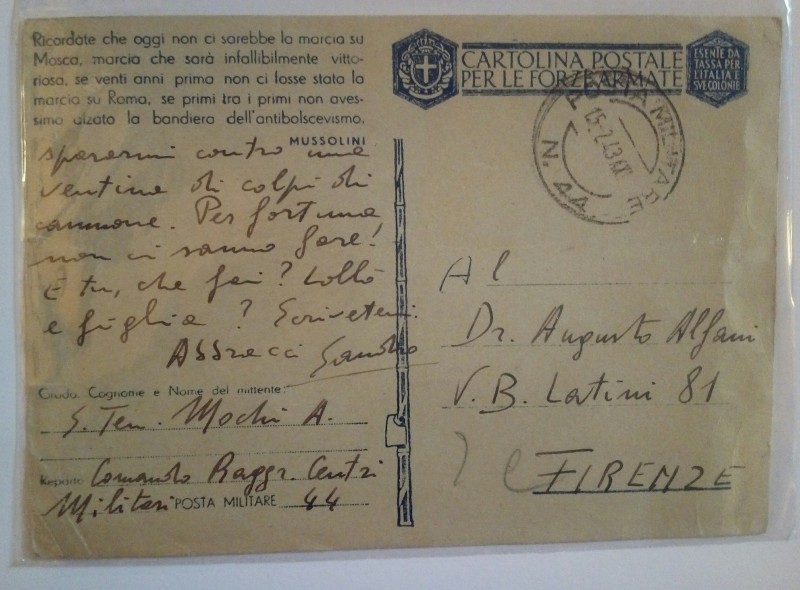 Ricordate che oggi non ci sarebbe la marcia su
Mosca, marcia che sarà infallibilmente vitto-
riosa, se venti anni prima non ci fosse stata la
marcia su Roma, se primi tra i primi non aves-
simo alzato la bandiera dell'antibolscevismo.
MUSSOLINI
spararmi contro una
ventina di colpi di
cannone. Per fortuna
non ci sanno fare!
E tu, che fai? Lollò
e figlia? Scrivetemi.
Abbracci Sandro
Grado, Cognome e Nome del mittente:
S. Ten. Mochi A.
Reparto Comando Raggr. Centri
Militari POSTA MILITARE 44
CARTOLINA POSTALE
PER LE FORZE ARMATE
ESENTE DA
TASSA PER
L'ITALIA E
SVE COLONIE
POSTA MILITARE
15.2.43.XXI
N. 44
Al
Dr. Augusto Alfani
V. B. Latini 81
FIRENZE